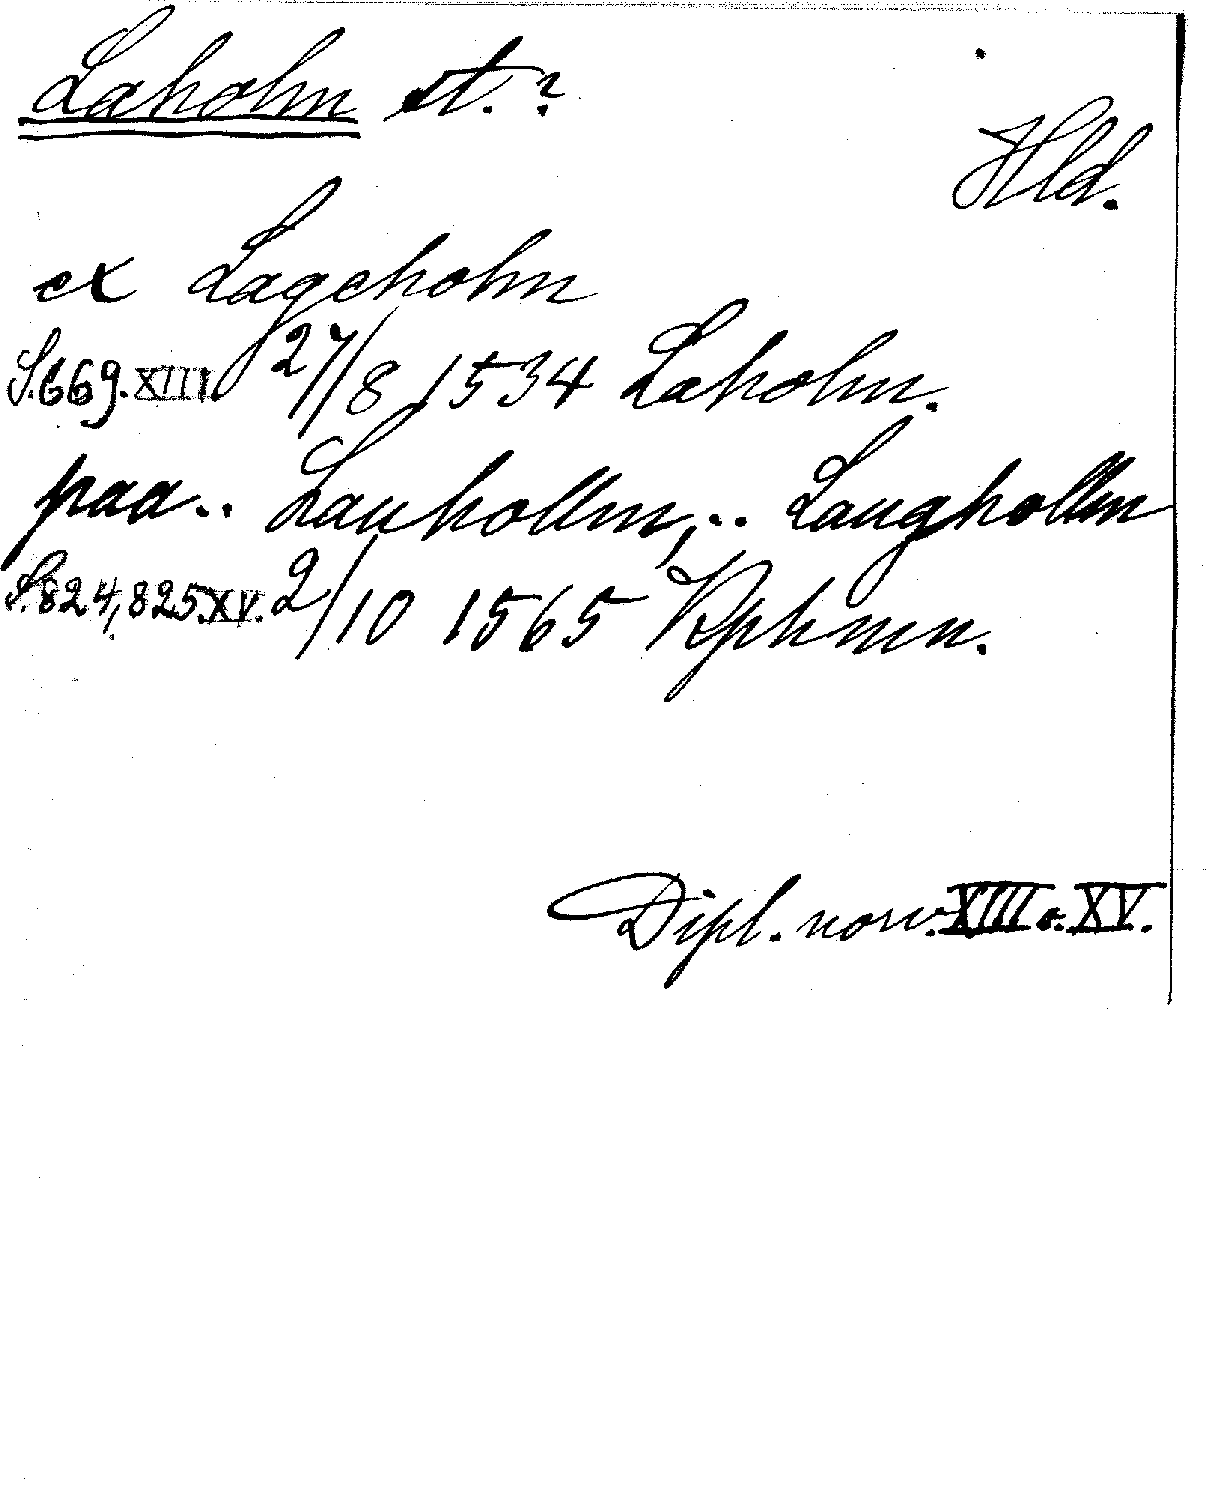 Laholm st.?
Hld.
ex Lageholm
S.669.XIII 27/8 1534 Laholm.
paa.. Lauhollm, .. Laughollm
S.824,825.XV. 2/10 1565 Kphmn.
Dipl. norv. XIII o. XV.